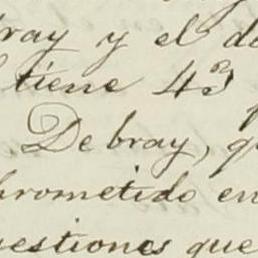 ray y el d
tiene 43
Debray, q
prometido en
uestiones que